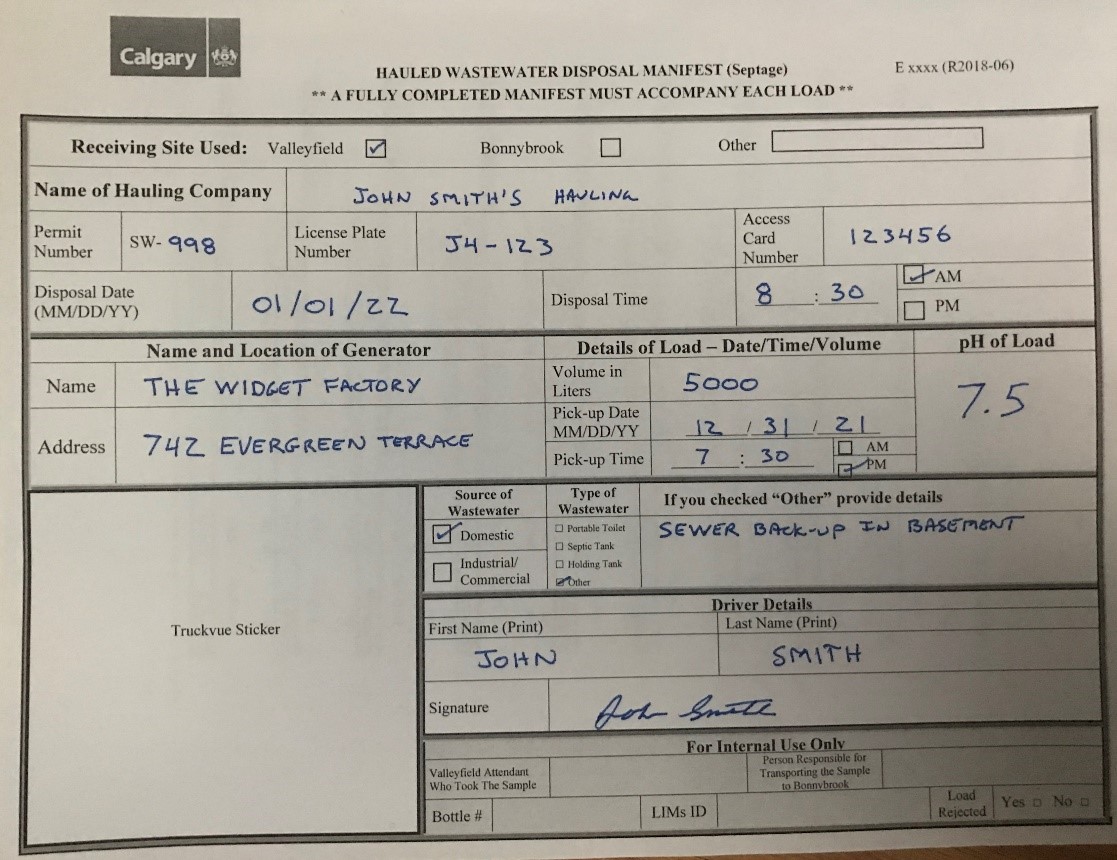 Calgary
HAULED WASTEWATER DISPOSAL MANIFEST (Septage)
E xxxx (R2018-06)
** A FULLY COMPLETED MANIFEST MUST ACCOMPANY EACH LOAD **
Receiving Site Used: Valleyfield Bonnybrook Other
Name of Hauling Company JOHN SMITH'S HAULING
Permit Number SW- 998 License Plate Number J4-123 Access Card Number 123456
Disposal Date (MM/DD/YY) 01/01/22 Disposal Time 8 : 30 AM
PM
Name and Location of Generator Details of Load – Date/Time/Volume pH of Load
Name THE WIDGET FACTORY Volume in Liters 5000 7.5
Address 742 EVERGREEN TERRACE Pick-up Date MM/DD/YY 12 / 31 / 21
Pick-up Time 7 : 30 AM
PM
Truckvue Sticker
Source of Wastewater Type of Wastewater If you checked “Other” provide details
Domestic Portable Toilet SEWER BACK-UP IN BASEMENT
Septic Tank
Industrial/ Commercial Holding Tank
Other
Driver Details
First Name (Print) Last Name (Print)
JOHN SMITH
Signature John Smith
For Internal Use Only
Valleyfield Attendant Who Took The Sample Person Responsible for Transporting the Sample to Bonnybrook
Bottle # LIMs ID Load Rejected Yes No